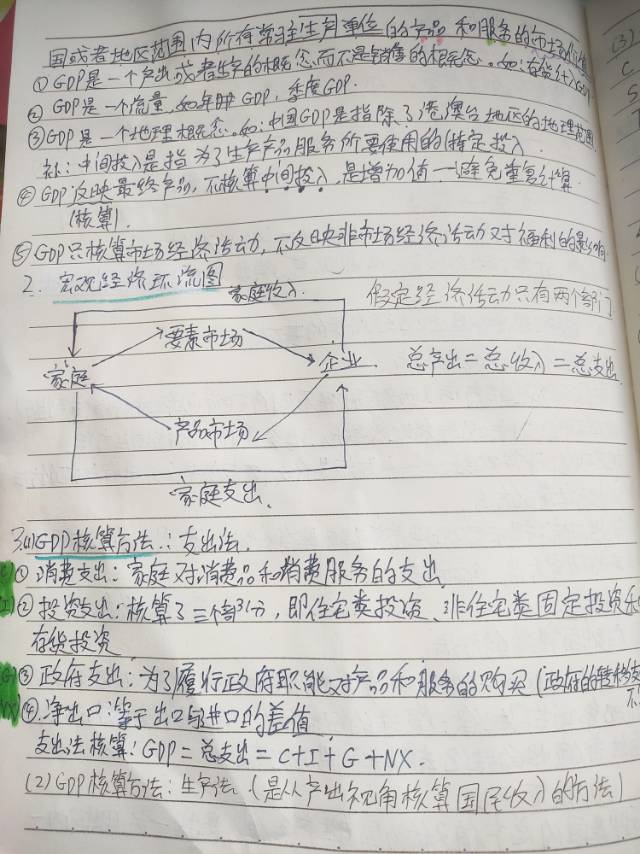 国或者地区范围内所有常驻生产单位的产品和服务的市场价值
①GDP是一个产出或者生产的概念而不是销售的概念。如:存货计入GDP
②GDP是一个流量,如年度GDP,季度GDP.
③GDP是一个地理概念。如:中国GDP是指除了港澳台地区的地理范围
补:中间投入是指为了生产产品服务所要使用的(特定投入
④GDP反映最终产品,不核算中间投入,是增加值—避免重复计算
(核算).
⑤GDP只核算市场经济活动,不反映非市场经济活动对福利的影响
2.宏观经济环流图
家庭收入.
假定经济活动只有两个部门
要素市场
家庭
企业.
总产出=总收入=总支出
产品市场
家庭支出.
3.(1)GDP核算方法:支出法.
C①消费支出:家庭对消费品和消费服务的支出
I②投资支出:核算了三个部分,即住宅类投资、非住宅类固定投资和
存货投资
G③政府支出:为了履行政府职能对产品和服务的购买(政府的转移支
不
NX④.净出口:等于出口与进口的差值
支出法核算:GDP=总支出=C+I+G+NX.
(2)GDP核算方法:生产法.(是从产出视角核算国民收入的方法)
(3)
C
S